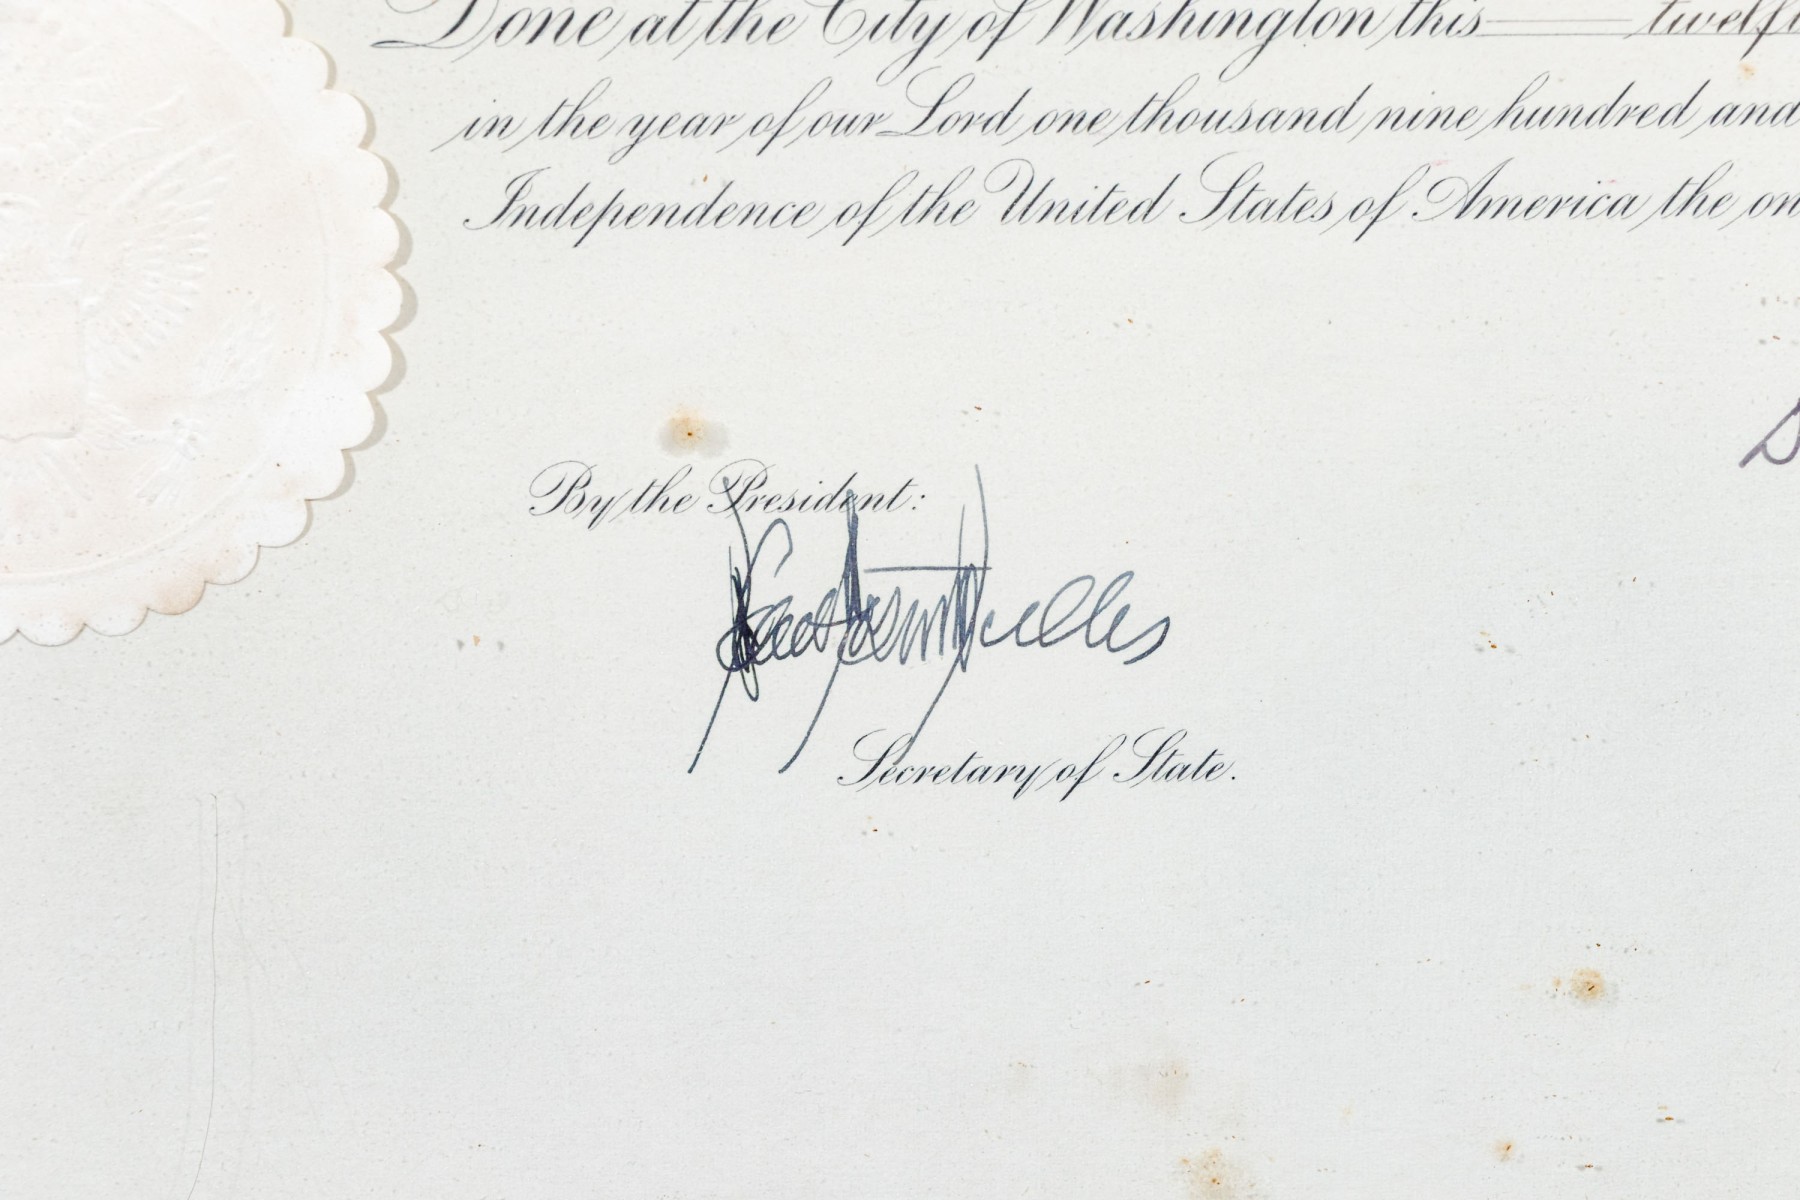 Done at the City of Washington this twelf
in the year of our Lord one thousand nine hundred and
Independence of the United States of America the on
By the President:
Secretary of State.